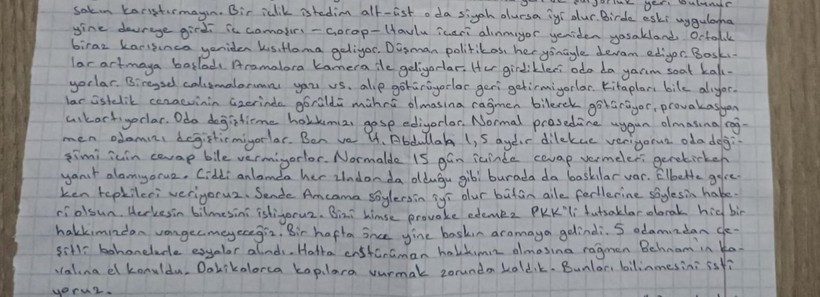 sakın karıştırmayın. Bir içlik istedim alt-üst o da siyah olursa iyi olur. Birde eski uygulama
yine devreye girdi iç çamaşırı - çorap - Havlu içeri alınmıyor yeniden yasaklandı. Ortalık
biraz karışınca yeniden kısıtlama geliyor. Düşman politikası her yönüyle devam ediyor. Baskı-
lar artmaya başladı. Aramalara kamera ile geliyorlar. Her girdikleri oda da yarım saat kalı-
yorlar. Bireysel çalışmalarımız yazı vs. alıp götürüyorlar geri getirmiyorlar. Kitapları bile alıyor-
lar üstelik cezaevinin üzerinde görüldü mührü olmasına rağmen bilerek götürüyor, provakasyon
çıkartıyorlar. Oda değiştirme hakkımızı gasp ediyorlar. Normal prosedüre uygun olmasına rağ-
men odamızı değiştirmiyorlar. Ben ve Abdullah 1,5 aydır dilekçe veriyoruz oda deği-
şimi için cevap bile vermiyorlar. Normalde 15 gün içinde cevap vermeleri gerekirken
yanıt alamıyoruz. Ciddi anlamda her zindanda olduğu gibi burada da baskılar var. Elbette gere-
ken tepkileri veriyoruz. Sende Amcama söylersin iyi olur bütün aile fertlerine söylesin habe-
ri olsun. Herkesin bilmesini istiyoruz. Bizi kimse provake edemez PKK'li tutsaklar olarak hiç bir
hakkımızdan vazgeçmeyeceğiz. Bir hafta önce yine baskın aramaya gelindi. 5 odamızdan çe-
şitli bahanelerle eşyalar alındı. Hatta enstürüman hakkımız olmasına rağmen Behnam'ın ka-
valına el konuldu. Dakikalarca kapılara vurmak zorunda kaldık. Bunları bilinmesini isti
yoruz.